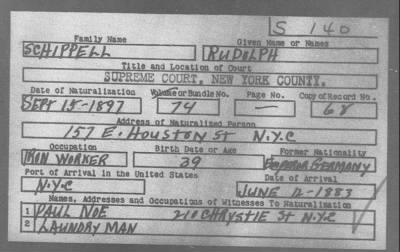 S 140
Family Name Given Name or Names
SCHIPPELL RUDOLPH
Title and Location of Court
SUPREME COURT, NEW YORK COUNTY.
Date of Naturalization Volume or Bundle No. Page No. Copy of Record No.
SEPT 15-1897 74 — 68
Address of Naturalized Person
157 E. HOUSTON ST N.Y.C
Occupation Birth Date or Age Former Nationality
IRON WORKER 39 EMPEROR GERMANY
Port of Arrival in the United States Date of Arrival
N.Y.C JUNE 12-1883
Names, Addresses and Occupations of Witnesses To Naturalization
1 PAUL NOE 210 CHRYSTIE ST N.Y.C
2 LAUNDRY MAN